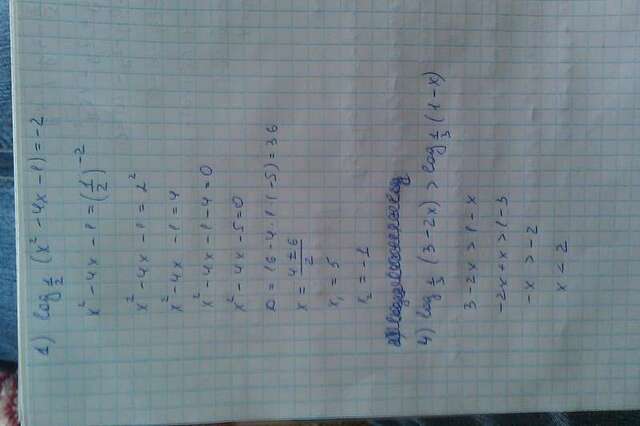 1) log_{1/2} (x² - 4x - 1) = -2
x² - 4x - 1 = (1/2)^{-2}
x² - 4x - 1 = 2²
x² - 4x - 1 = 4
x² - 4x - 1 - 4 = 0
x² - 4x - 5 = 0
D = 16 - 4 · 1 · (-5) = 36
x = (4 ± 6)/2
x₁ = 5
x₂ = -1
4) log_{1/3} (3 - 2x) > log_{1/3} (1 - x)
3 - 2x > 1 - x
-2x + x > 1 - 3
-x > -2
x < 2